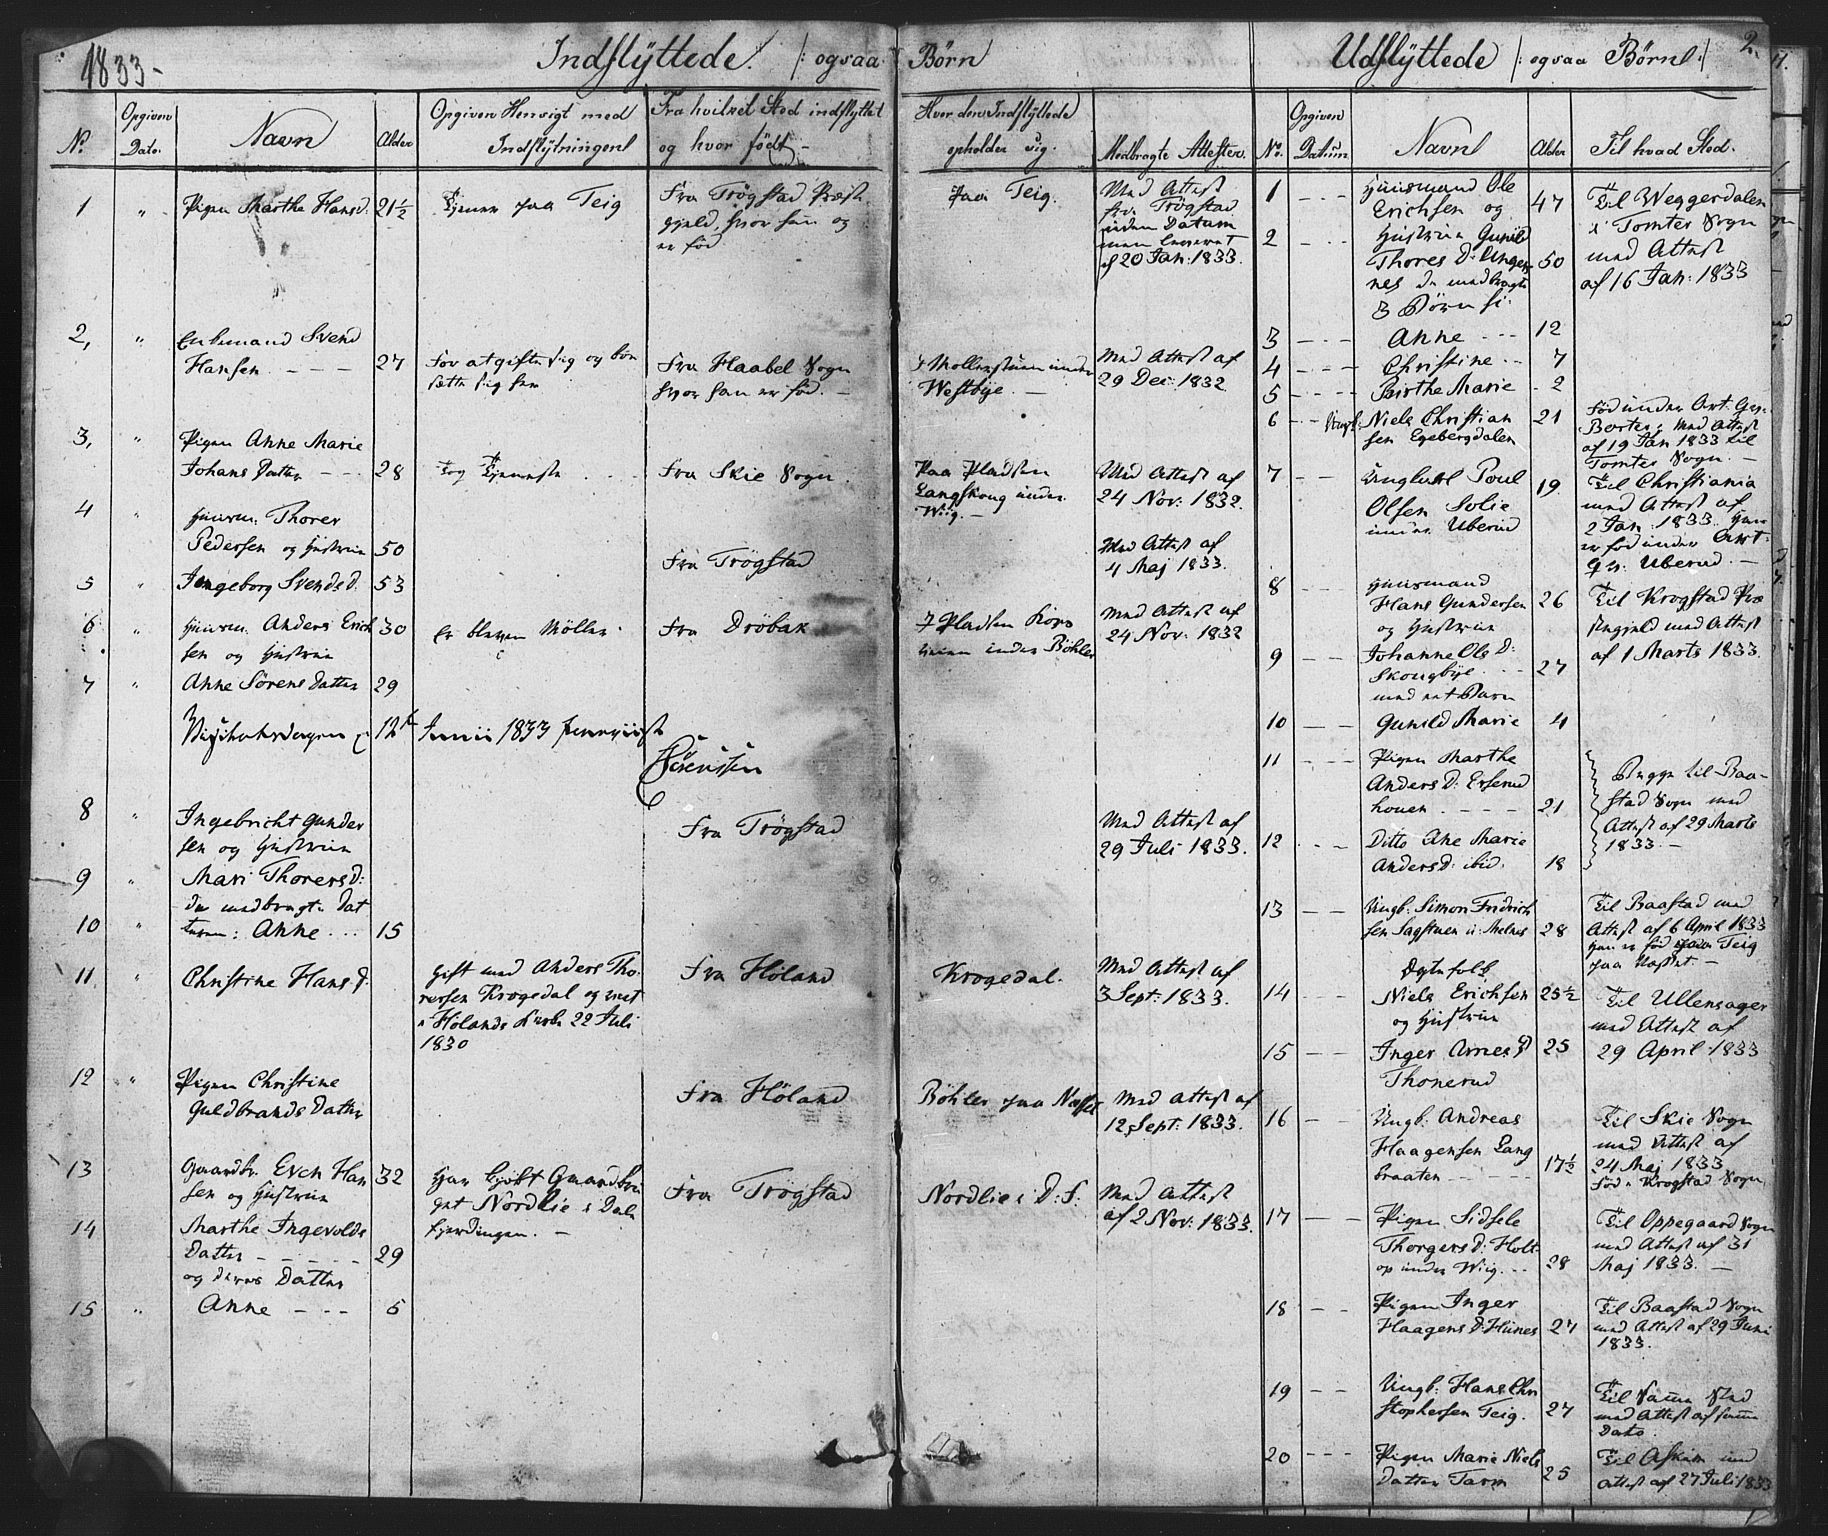 1833-
Indflyttede. /: ogsaa Børn
No.
Opgiven Dato.
Navn
Alder
Opgiven Hensigt med Indflytningen
Fra hvilket Sted indflyttet og hvor født -
Hvor den Indflyttede opholder sig.
Medbragte Attester.
1 " Pigen Marthe Hansd. 21½ Tjener paa Teig
Fra Trøgstad Præste
gjeld, hvor hun og
er fød
paa Teig.
Med Attest
fra Trøgstad
uden Datum
men leveret
af 20 Jan: 1833.
2, " Enkemand Svend
Hansen - - - 27
For at gifte sig og bo
sætte sig her
Fra Haabel Sogn
hvor han er fød. -
i Mollerstuen under
Westbye. -
Med Attest af
29 Dec: 1832
3, " Pigen Anne Marie
Johans Datter - - - 28
Fra Skie Sogn.
Paa Pladsen
Langskoug under
Wiig. -
Med Attest af
24 Nov: 1832.
4 " Huusm: Thorer
Pedersen og Hustrue 50
Fra Trøgstad
Med Attest af
4 Maj 1833.
5 " Ingeborg Svendsd: 53
6 " Huusm. Anders Erich 30
sen og Hustrue
Er bleven Møller
Fra Drøbak
i Pladsen
under Bøhler
Med Attest af
24 Nov: 1832
7 " Anne Sørens Datter 29
12te Junii 1833
Sørenssen
8 " Ingebricht Gunder
sen og Hustrue
Fra Trøgstad
Med Attest af
29 Juli 1833.
9 " Mari Thorersd:
de medbragte Dat
10 " teren: Anne ... 15
11 " Christine Hansd.
Gift med Anders Tho-
resen Krogedal og viet
i Hølands Kirke 22 Juli
1830
Fra Høland
Krogedal.
Med Attest af
3 Sept: 1833.
12 " Pigen Christine
Guldbrands Datter
Fra Høland
Bøhler paa Næsset
Med Attest af
12 Sept: 1833.
13 Gaardbr. Erich Han 32
sen og Hustrue
Har kjøbt Gaardbru
get Nordlie i Dals
fjerdingen. -
Fra Trøgstad
Nordlie i D: F.
Med Attest
af 2 Nov: 1833.
14 Marthe Ingevolds
Datter - - - - 29
og deres Datter
15 " Anne - - - 6
Udflyttede /: ogsaa Børn :/
2.
No.
Opgiven Datum
Navn
Alder
Til hvad Sted.
1 - - - Huusmand Ole
Erichsen og 47
2 - - - Hustrue Gunild
Thores D: Unger 50
nes de medbragte
3 Børn
Til Weggerdalen
i Tomter Sogn
med Attest
af 16 Jan: 1833
3 - - - Anne - - - 12
4 - - - Christine - - 7
5 - - - Birthe Marie - 2
6 - - Ungk: Niels Christian 21
sen Egebergdalen
Fød under
med Attest
af 19 Jan 1833 til
Tomter Sogn. -
7 - - Ungkarl Poul
Olsen Solie 19.
under Uberud
Til Christiania
med Attest af
2 Jan: 1833. Han
er fød under
Uberud. -
8 - - Huusmand
Hans Gundersen 26
og Hustrue
Til Krogstad Præ
stegjeld med Attest
af 1 Marts 1833.
9 - - Johanne Ols D:
Skougbye. - - 27
med et Barn
10 - - Gunild Marie 4
11 - - - Pigen Marthe
Anders D: Erserud
houen. - - - - 21
Begge til Baa-
stad Sogn med
Attest af 29 Marts
1833. -
12 - - Ditto Ane Marie
Anders D: ibid. 18
13 - - Ungk: Simon Fridrich
sen Sagstuen 28
Til Baastad med
Attest af 6 April 1833
Han er fød under Teig
paa Næsset -
14 - - Niels Erichsen 25½
og Hustrue
Til Ullensager
med Attest af
29 April 1833
15 - - Inger Arnes D 25
Thonerud
16 - - Ungk: Andreas
Haagensen Lang
braaten - - - 17½
Til Skie Sogn
med Attest af
24 Maj 1833
Fød i Krogstad Sogn
17 - - Pigen Sidsele
Thorgers D: Holt
op under Wiig. - - 28
Til Oppegaard Sogn
med Attest af 31
Maj 1833. -
18 - - Pigen Inger
Haagens D: Hunes 27
Til Baastad Sogn
med Attest af 29 Juni
1833.
19 - - Ungk: Hans Chri
stophersen Teig. 27
Til samme Sted
med Attest af samme
Dato.
20 - - - Pigen Marie Niels
Datter 25
Til Askim med
Attest af 27 Juli 1833